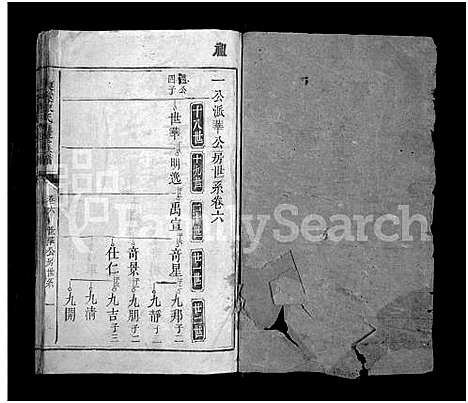 一公派華公房世系卷六
十八世 十九世 二十世 廿一世 廿二世
四子
世華 明逸 禹宣 奇星 九邦 子二
九靜 子一
奇景 九朋 子二
九吉 子三
仕仁 九清
九開
卷六 世華公房世系
FamilySearch